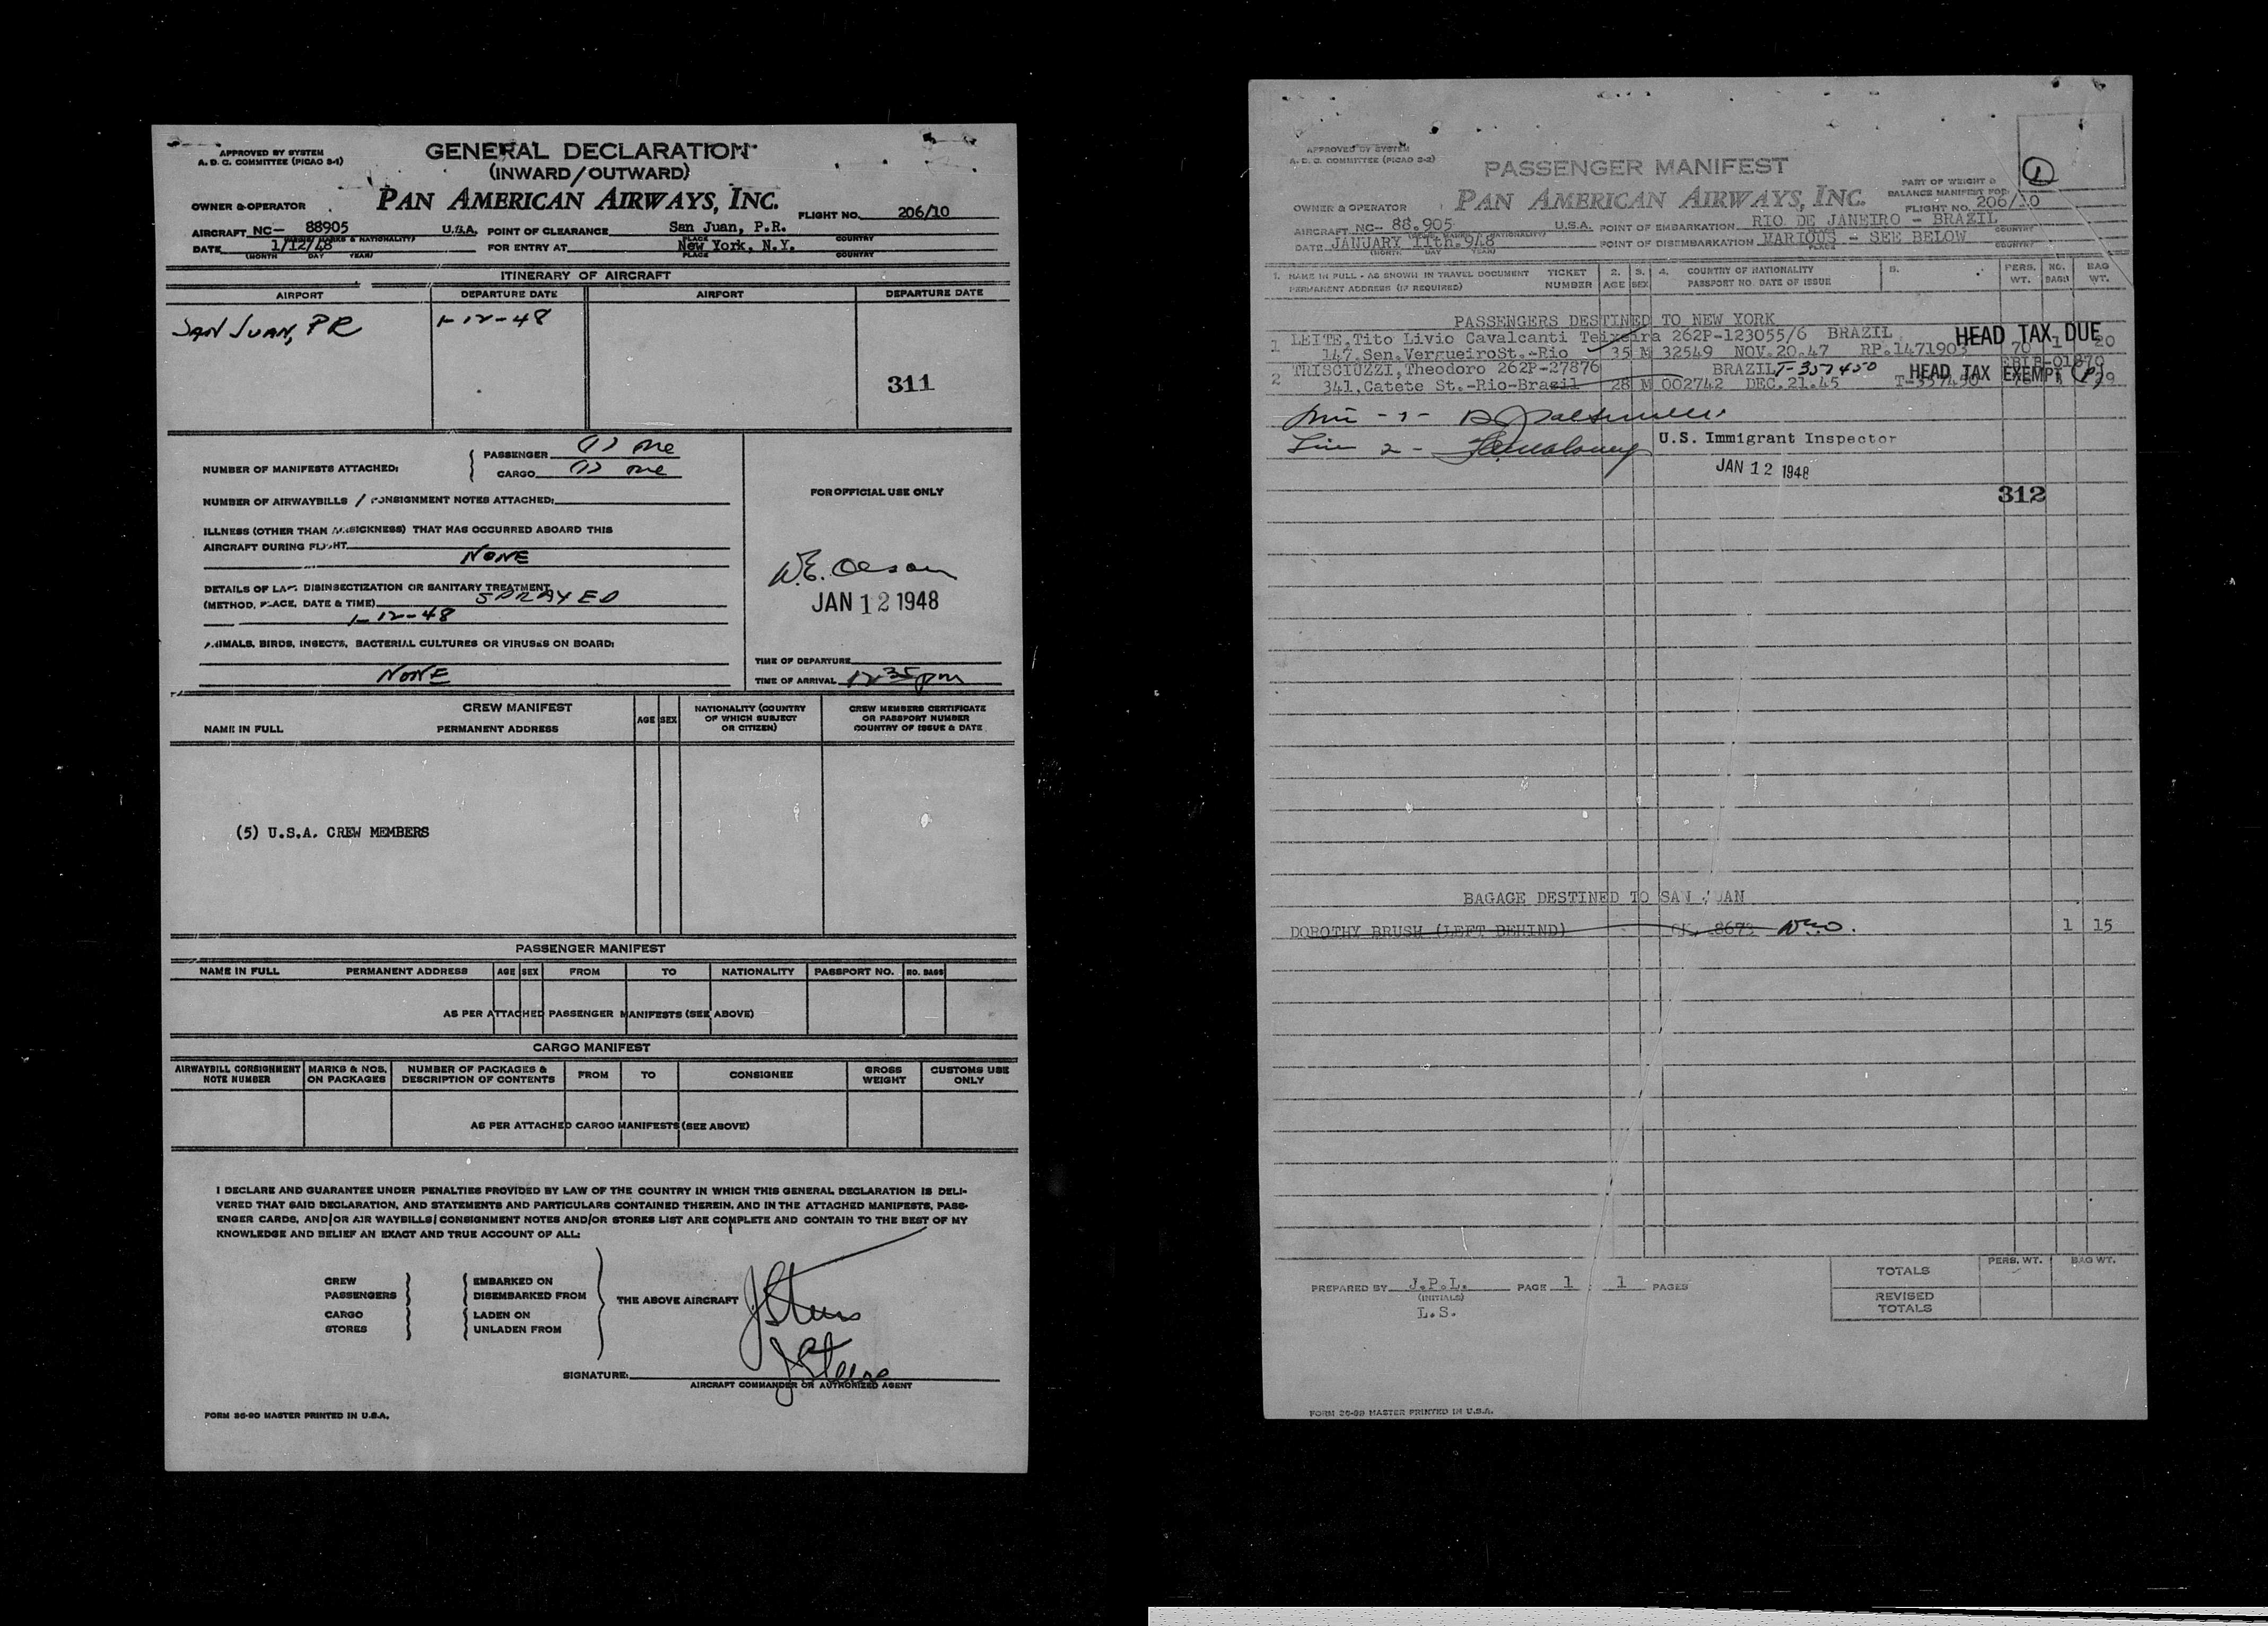 APPROVED BY SYSTEM
A. D. C. COMMITTEE (PICAO S-1)
GENERAL DECLARATION
(INWARD/OUTWARD)
OWNER & OPERATOR PAN AMERICAN AIRWAYS, INC. FLIGHT NO. 206/10
AIRCRAFT NC- 88905 U.S.A. POINT OF CLEARANCE San Juan, P.R.
(MARKS & NATIONALITY) PLACE COUNTRY
DATE 1/12/48 FOR ENTRY AT New York, N.Y.
(MONTH DAY YEAR) PLACE COUNTRY
ITINERARY OF AIRCRAFT
AIRPORT DEPARTURE DATE AIRPORT DEPARTURE DATE
SAN JUAN, PR 1-12-48
311
NUMBER OF MANIFESTS ATTACHED: PASSENGER (1) one
CARGO (1) one
NUMBER OF AIRWAYBILLS / CONSIGNMENT NOTES ATTACHED:
ILLNESS (OTHER THAN AIRSICKNESS) THAT HAS OCCURRED ABOARD THIS
AIRCRAFT DURING FLIGHT
NONE
DETAILS OF LAST DISINSECTIZATION OR SANITARY TREATMENT
(METHOD, PLACE, DATE & TIME) SPRAYED
1-12-48
ANIMALS, BIRDS, INSECTS, BACTERIAL CULTURES OR VIRUSES ON BOARD:
NONE
FOR OFFICIAL USE ONLY
W.E. Olson
JAN 12 1948
TIME OF DEPARTURE
TIME OF ARRIVAL 12 35 pm
CREW MANIFEST
NAME IN FULL PERMANENT ADDRESS AGE SEX NATIONALITY (COUNTRY OF WHICH SUBJECT OR CITIZEN) CREW MEMBERS CERTIFICATE OR PASSPORT NUMBER COUNTRY OF ISSUE & DATE
(5) U.S.A. CREW MEMBERS
PASSENGER MANIFEST
NAME IN FULL PERMANENT ADDRESS AGE SEX FROM TO NATIONALITY PASSPORT NO. NO. BAGS
AS PER ATTACHED PASSENGER MANIFESTS (SEE ABOVE)
CARGO MANIFEST
AIRWAYBILL CONSIGNMENT NOTE NUMBER MARKS & NOS. ON PACKAGES NUMBER OF PACKAGES & DESCRIPTION OF CONTENTS FROM TO CONSIGNEE GROSS WEIGHT CUSTOMS USE ONLY
AS PER ATTACHED CARGO MANIFESTS (SEE ABOVE)
I DECLARE AND GUARANTEE UNDER PENALTIES PROVIDED BY LAW OF THE COUNTRY IN WHICH THIS GENERAL DECLARATION IS DELI-
VERED THAT SAID DECLARATION, AND STATEMENTS AND PARTICULARS CONTAINED THEREIN, AND IN THE ATTACHED MANIFESTS, PASS-
ENGER CARDS, AND/OR AIR WAYBILLS/CONSIGNMENT NOTES AND/OR STORES LIST ARE COMPLETE AND CONTAIN TO THE BEST OF MY
KNOWLEDGE AND BELIEF AN EXACT AND TRUE ACCOUNT OF ALL:
CREW EMBARKED ON
PASSENGERS DISEMBARKED FROM THE ABOVE AIRCRAFT
CARGO LADEN ON
STORES UNLADEN FROM
SIGNATURE:
AIRCRAFT COMMANDER OR AUTHORIZED AGENT
FORM 36-90 MASTER PRINTED IN U.S.A.
APPROVED BY SYSTEM
A. D. C. COMMITTEE (PICAO S-2)
PASSENGER MANIFEST
1
PART OF WEIGHT & BALANCE MANIFEST FOR:
OWNER & OPERATOR PAN AMERICAN AIRWAYS, INC. FLIGHT NO. 206/10
AIRCRAFT NC- 88.905 U.S.A. POINT OF EMBARKATION RIO DE JANEIRO - BRAZIL
DATE JANUARY 11th.948 POINT OF DISEMBARKATION MARIOUS - SEE BELOW
(MONTH DAY YEAR) PLACE COUNTRY
1. NAME IN FULL - AS SHOWN IN TRAVEL DOCUMENT TICKET 2. 3. 4. COUNTRY OF NATIONALITY 5. PERS. NO. BAG
PERMANENT ADDRESS (IF REQUIRED) NUMBER AGE SEX PASSPORT NO. DATE OF ISSUE WT. BAGS WT.
PASSENGERS DESTINED TO NEW YORK
1 LEITE,Tito Livio Cavalcanti Teixeira 262P-123055/6 BRAZIL HEAD TAX DUE
147.Sen.VergueiroSt.-Rio 35 M 32549 NOV.20.47 RP.1471903 70 1 20
2 TRISCIUZZI,Theodoro 262P-27876 BRAZIL T-357450
341,Catete St.-Rio-Brazil 28 M 002742 DEC.21.45 T-357450 HEAD TAX EXEMPT (P) 29
Line 2 -
U.S. Immigrant Inspector
JAN 12 1948
312
BAGAGE DESTINED TO SAN JUAN
DOROTHY BRUSH (LEFT BEHIND) 1 15
PREPARED BY J.P.L. PAGE 1 : 1 PAGES
(INITIALS)
L.S.
PERS. WT. BAG WT.
TOTALS
REVISED TOTALS
FORM 36-99 MASTER PRINTED IN U.S.A.